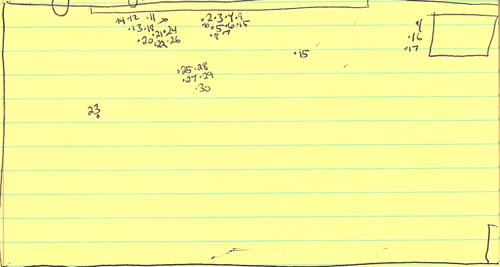 .14.12 .11
.13.18 .24
.21
.20 .22.26
.2.3.4.9
.5.6.15
.8.7
.16
.17
.15
.25.28
.27.29
.30
23